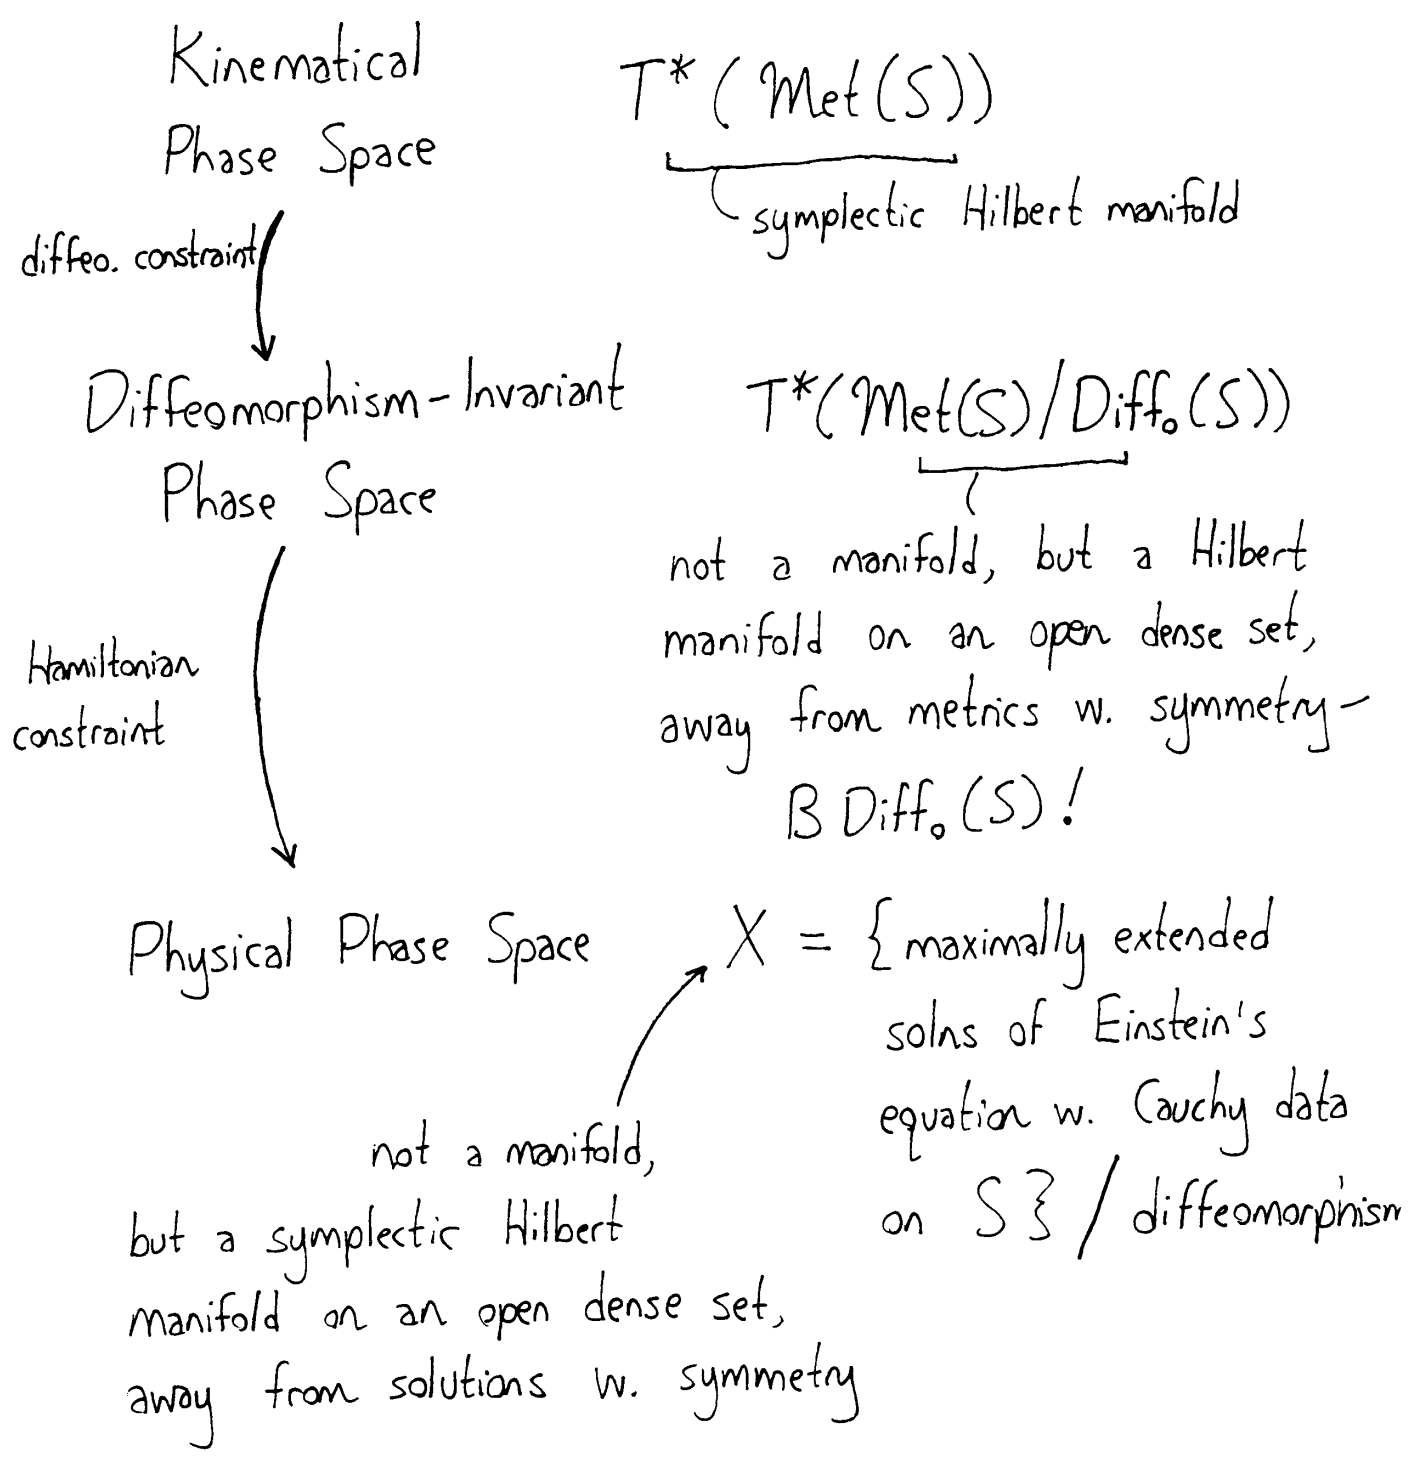 Kinematical
Phase Space
T*(Met(S))
symplectic Hilbert manifold
diffeo. constraint
Diffeomorphism-Invariant
Phase Space
T*(Met(S)/Diff₀(S))
not a manifold, but a Hilbert
manifold on an open dense set,
away from metrics w. symmetry-
B Diff₀(S)!
Hamiltonian
constraint
Physical Phase Space
X = {maximally extended
solns of Einstein's
equation w. Cauchy data
on S} / diffeomorphism
not a manifold,
but a symplectic Hilbert
manifold on an open dense set,
away from solutions w. symmetry